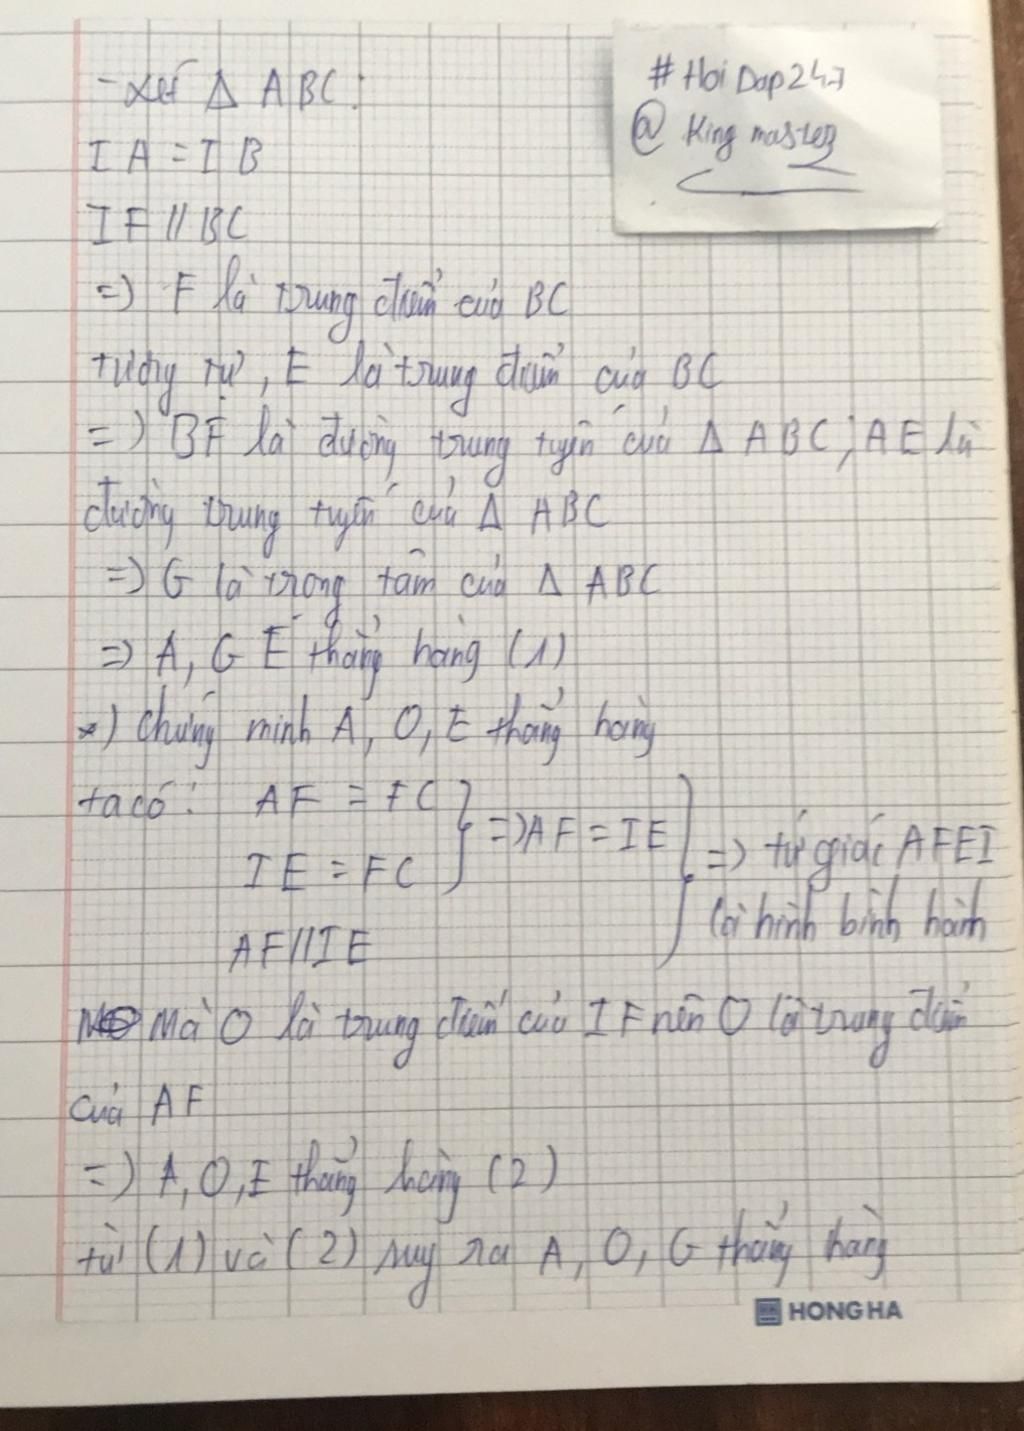 - Xét Δ ABC:
# Hoi Dap 247
@ King master
IA = IB
IF // BC
=) F là trung điểm của BC
tương tự, E là trung điểm của BC
=) BF là đường trung tuyến của Δ ABC; AE là
đường trung tuyến của Δ ABC
=) G là trọng tâm của Δ ABC
=) A, G E thẳng hàng (1)
*) Chứng minh A, O, E thẳng hàng
ta có: AF = FC } =) AF = IE } =) tứ giác AFEI
IE = FC là hình bình hành
AF // IE
Mà O là trung điểm của IF nên O là trung điểm
của AF
=) A, O, E thẳng hàng (2)
từ (1) và (2) suy ra A, O, G thẳng hàng
HONG HA